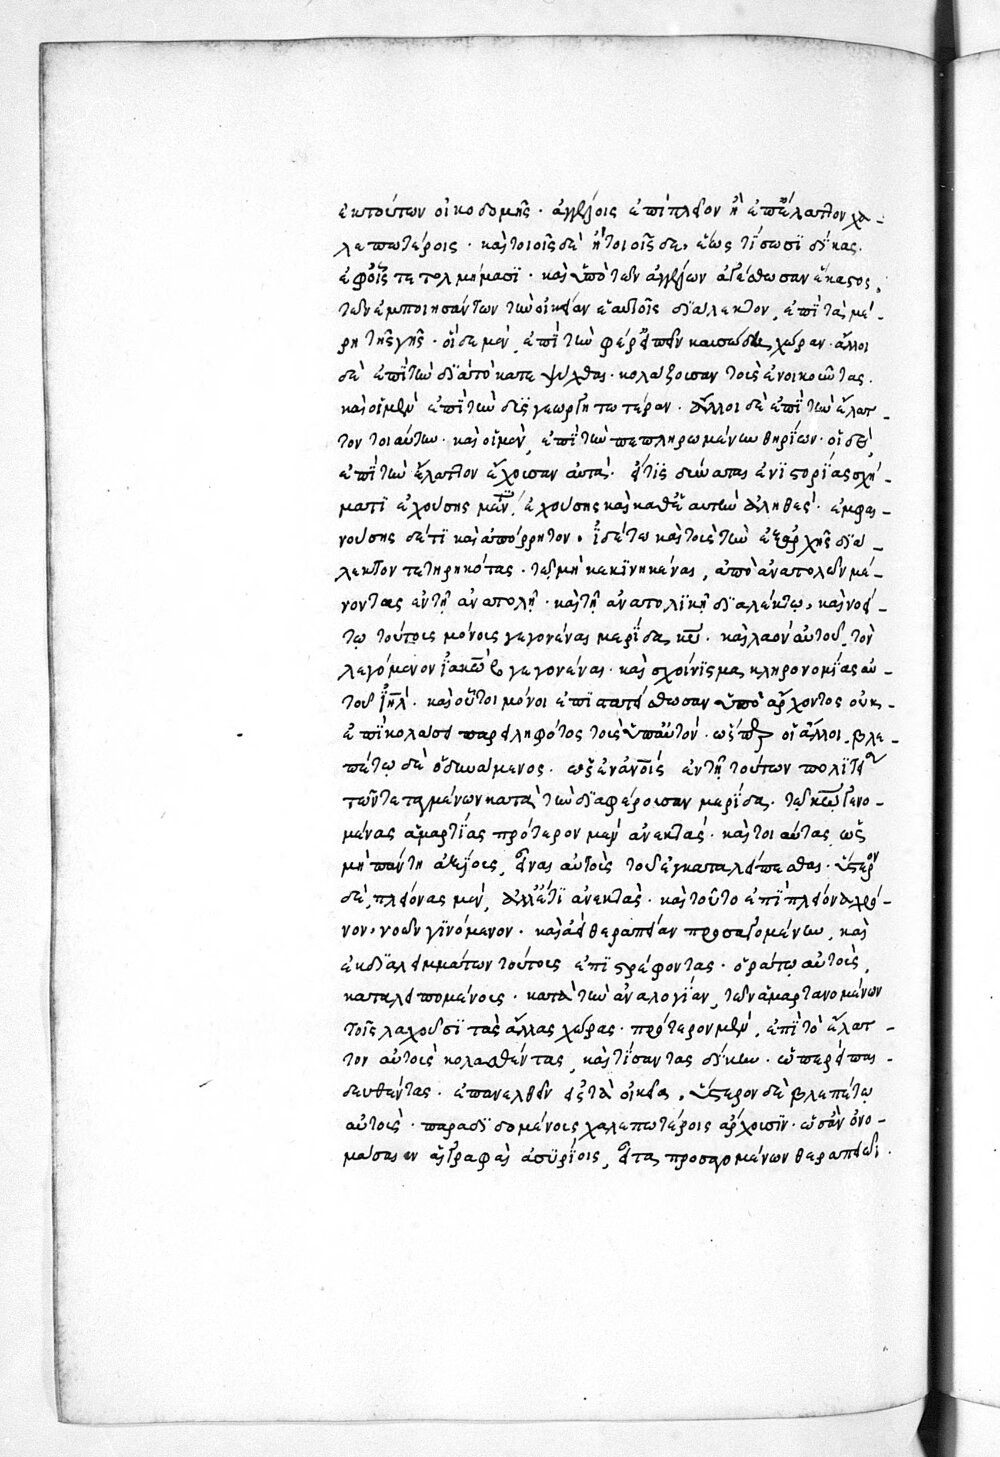 ἐκ τούτων οἰκοδομῆς · ἀγγέλοις ἐπὶ πλεῖον ἢ ἐπ' ἔλαττον χα-
λεπωτέροις · καὶ τοιοῖσδὲ ἢ τοιοῖσδε, ἕως τίσωσϊ δίκας.
ἐφ' οἷς τετολμήκασϊ · καὶ ὑπὸ τῶν ἀγγέλων ἀγέσθωσαν ἕκαστος,
τῶν ἐμποιησάντων τὴν οἰκείαν ἑαυτοῖς διάλεκτον, ἐπὶ τὰ μέ-
ρη τῆς γῆς · οἵδε μὲν, ἐπὶ τὴν φέρ' εἰπεῖν καυσώδη χώραν · ἄλλοι
δὲ ἐπὶ τὴν διὰ τὸ κατεψύχθαι · κολάζουσαν τοὺς ἐνοικοῦντας.
καὶ οἱ μὲν ἐπὶ τὴν δυσγεωργητοτέραν · ἄλλοι δὲ ἐπὶ τὴν ἔλατ-
τον τοιαύτην · καὶ οἱ μὲν, ἐπὶ τὴν πεπληρωμένην θηρίων · οἱ δὲ,
ἐπὶ τὴν ἔλαττον ἔχουσαν αὐτά · εἶτις δύναται ἐν ἱστορίας σχή-
ματι ἐχούσης μέν τι, ἐχούσης καὶ καθ' αὑτὴν ἀληθὲς · ἐμφαι-
νούσης δέ τι καὶ ἀπόρρητον · ἰδέτω καὶ τοὺς τὴν ἐξ ἀρχῆς διά-
λεκτον τετηρηκότας · τῷ μὴ κεκινηκέναι, ἀπὸ ἀνατολῶν μέ-
νοντας ἐν τῇ ἀνατολῇ · καὶ τῇ ἀνατολϊκῇ διαλέκτῳ, καὶ νοεί-
τω τούτους μόνους γεγονέναι μερίδα κ̅υ̅ · καὶ λαὸν αὐτοῦ, τὸν
λεγόμενον ἰακὼβ γεγονέναι · καὶ σχοίνϊσμα κληρονομίας αὐ-
τοῦ ἰ̅η̅λ̅ · καὶ οὗτοι μόνοι ἐπιστατείσθωσαν ὑπὸ ἄρχοντος οὐκ
ἐπὶ κολάσει παρειληφότος τοὺς ὑπ' αὐτὸν · ὥσπερ οἱ ἄλλοι · βλε-
πέτω δὲ ὁ δυνάμενος · ὡς ἐν ἀνοις ἐν τῇ τούτων πολιτείᾳ
τῶν τεταγμένων κατὰ τὴν διαφέρουσαν μερίδα · τῷ κ̅ω̅ γενο-
μένας ἁμαρτίας πρότερον μὲν ἀνεκτάς · καὶ τοιαύτας ὡς
μὴ πάντη ἀξίους, εἶναι αὐτοὺς τοῦ ἐγκαταλείπεσθαι · ὕστερον
δὲ, πλείονας μὲν, ἀλλ' ἔτι ἀνεκτὰς · καὶ τοῦτο ἐπὶ πλείονα χρό-
νον, νοῶν γϊνόμενον · καὶ ἀεὶ θεραπείαν προσαγομένην, καὶ
ἐκ διαλειμμάτων τούτους ἐπιστρέφοντας · ὁράτω αὐτοὺς,
καταλειπομένους · κατὰ τὴν ἀναλογίαν, τῶν ἁμαρτανομένων
τοῖς λαχοῦσϊ τὰς ἄλλας χώρας · πρότερον μὲν, ἐπὶ τὸ ἔλατ-
τον αὐτοὺς κολασθέντας, καὶ τίσαντας δίκην · ὡσπερεὶ παι-
δευθέντας · ἐπανελθεῖν εἰς τὰ οἰκεῖα, ὕστερον δὲ βλεπέτω
αὐτοὺς · παραδϊδομένους χαλεπωτέροις ἄρχουσϊν · ὡς ἂν ὀνο-
μάσαιεν αἱ γραφαὶ ἀσϋρίοις, εἶτα προσαγομένων θεραπειῶν.